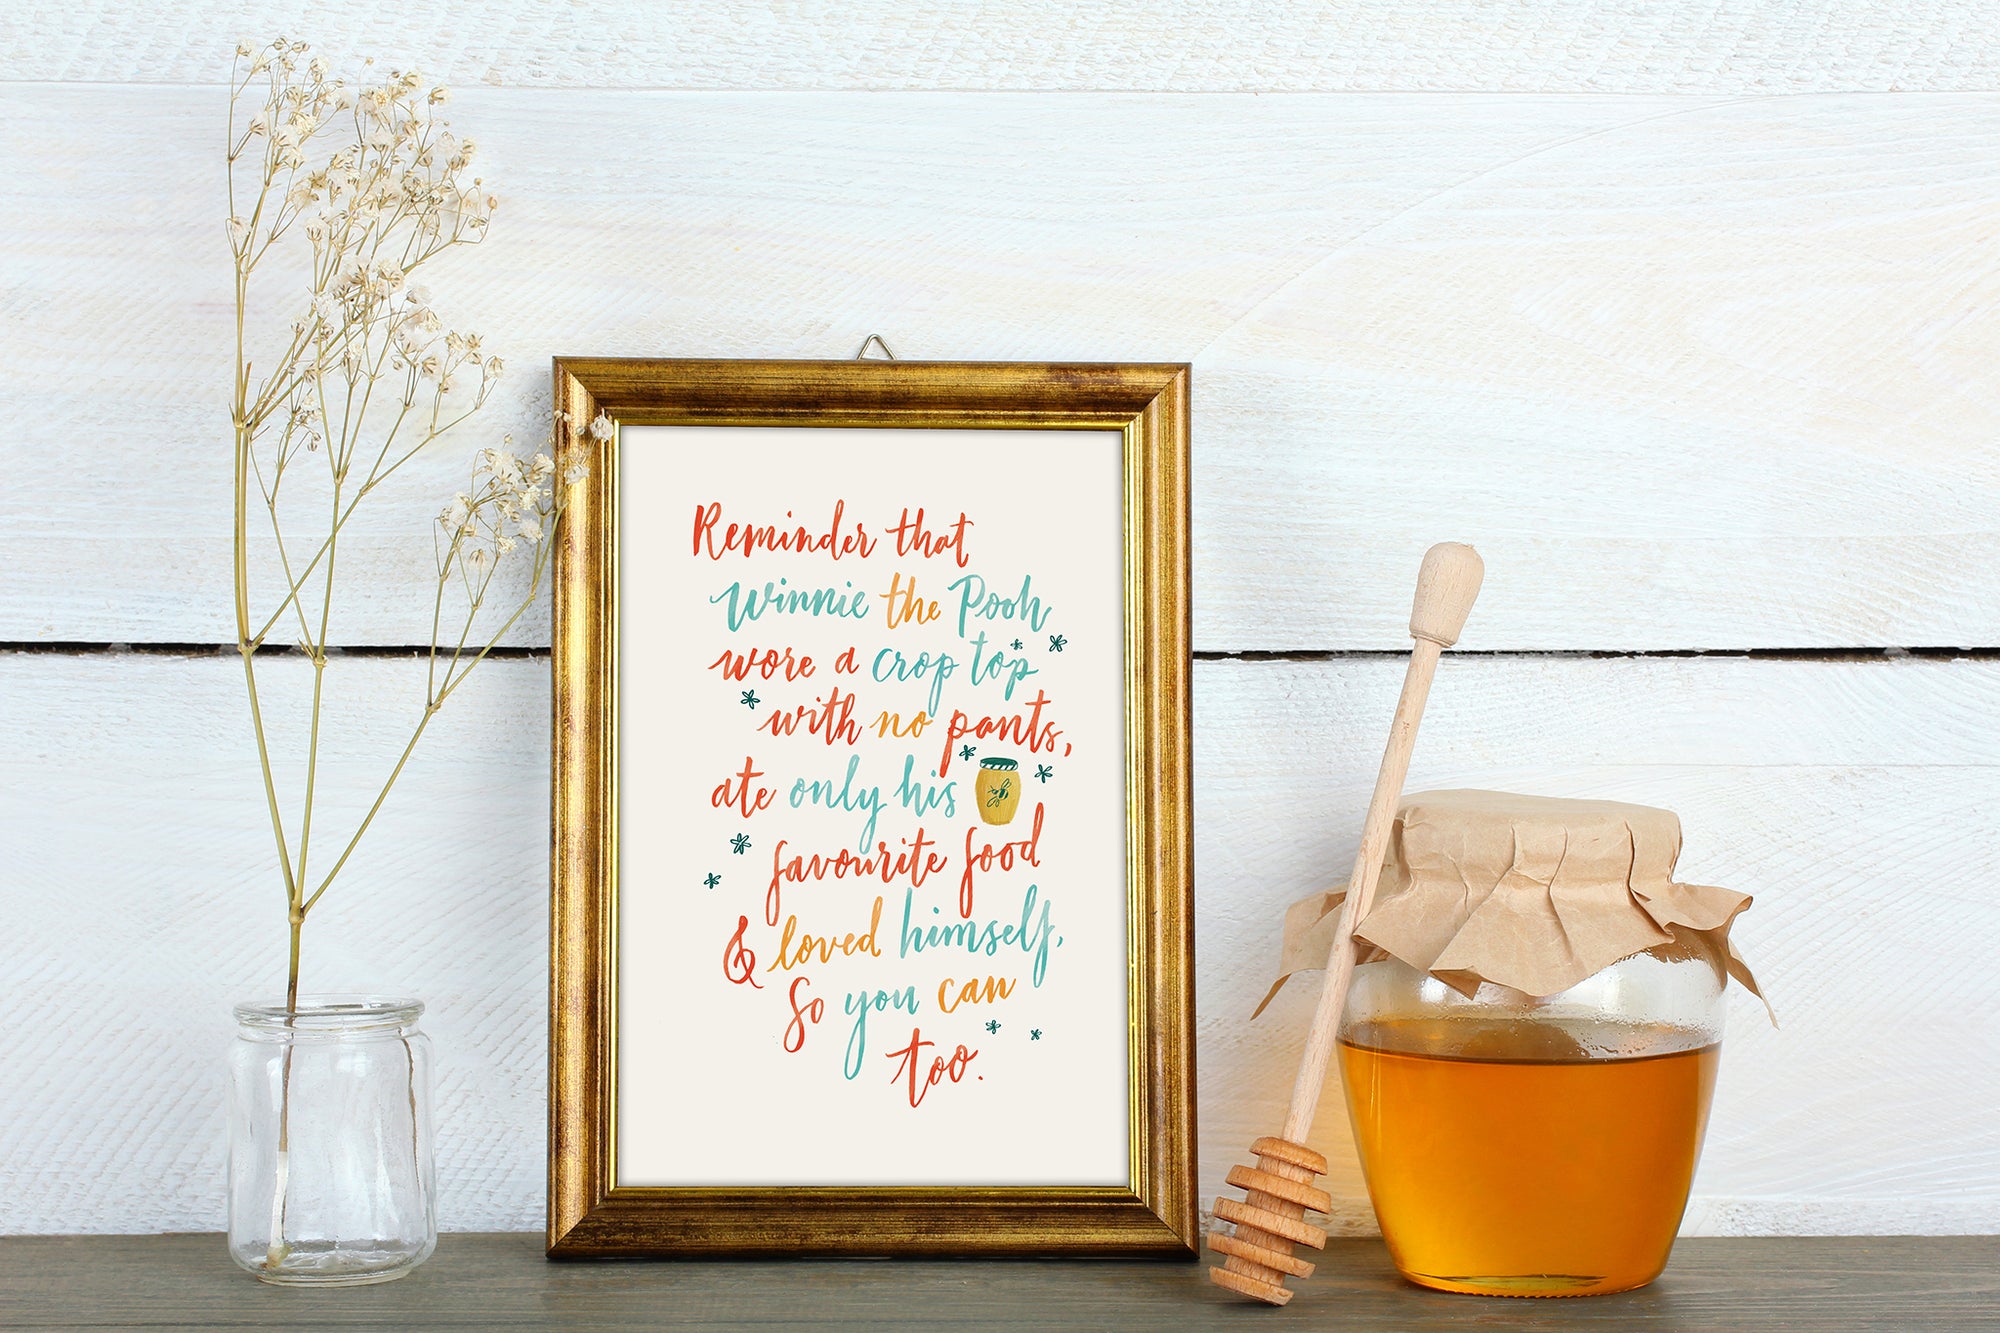 Reminder that
Winnie the Pooh
wore a crop top
with no pants,
ate only his
favourite food
& loved himself,
So you can
too.